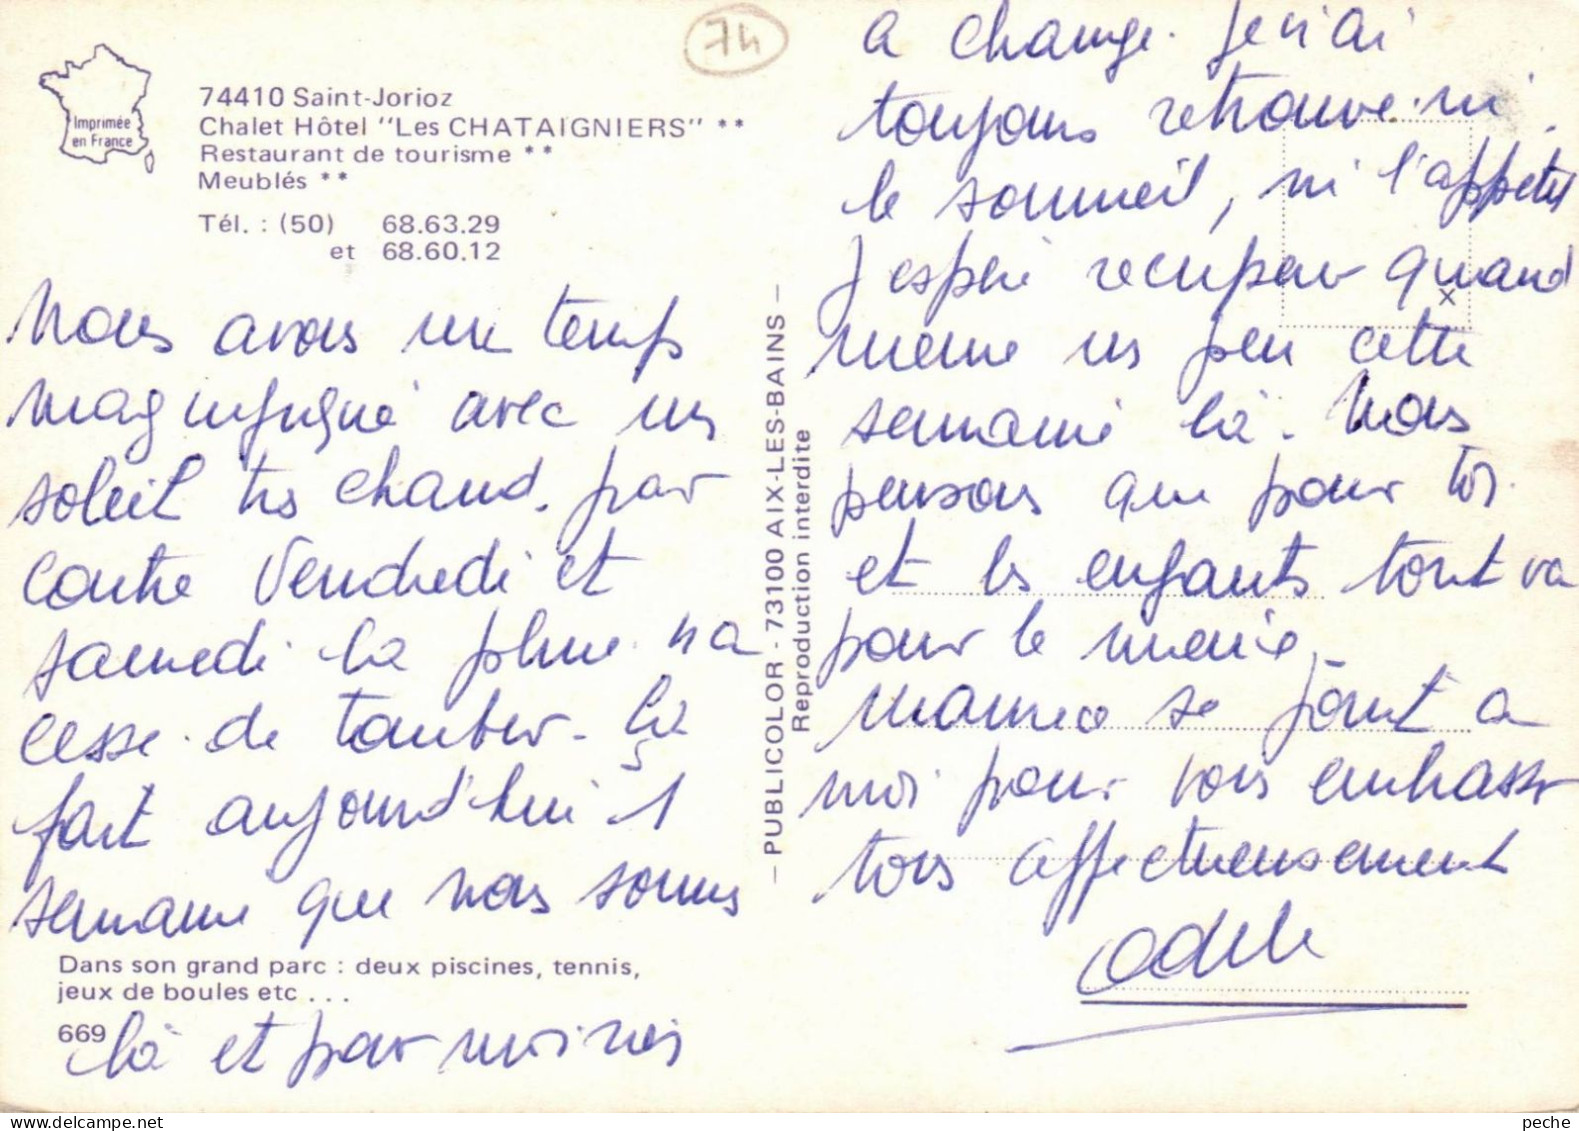 74
Imprimée
en France
74410 Saint-Jorioz
Chalet Hôtel "Les CHATAIGNIERS" **
Restaurant de tourisme **
Meublés **
Tél. : (50) 68.63.29
et 68.60.12
Nous avons un temps
magnifique avec un
soleil tres chaud. par
contre Vendredi et
samedi la pluie n'a
cesse de tomber. ça
fait aujourd'hui 1
semaine que nous sommes
Dans son grand parc : deux piscines, tennis,
jeux de boules etc ...
669
là et pour moi rien
- PUBLICOLOR - 73100 AIX-LES-BAINS -
Reproduction interdite
a change. Je n'ai
toujours retrouve ni
le sommeil, ni l'appetit
J'espere recuperer quand
meme un peu cette
semaine là. Nous
pensons que pour toi
et les enfants tout va
pour le mieux.
mamie se joint a
moi pour vous embrasser
tous affectueusement
Odile
x
peche